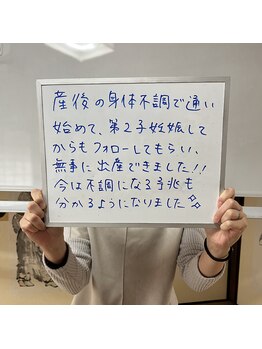 産後の身体不調で通い
始めて、第2子妊娠して
からもフォローしてもらい、
無事に出産できました!!
今は不調になる予兆も
分かるようになりました✨